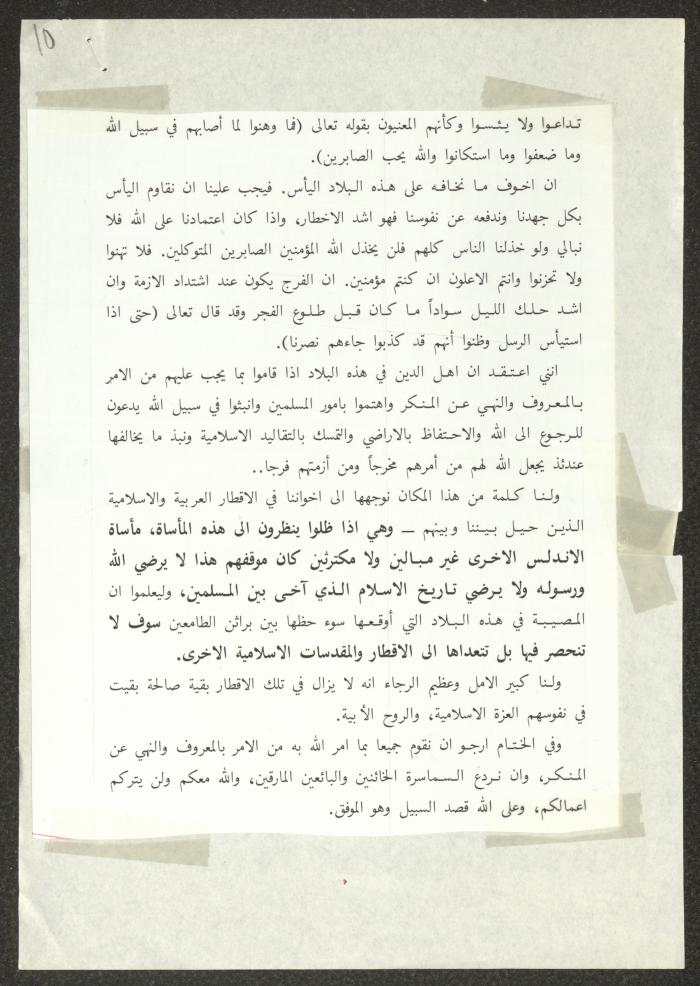 10
تداعوا ولا يئسوا وكأنهم المعنيون بقوله تعالى (فما وهنوا لما أصابهم في سبيل الله
وما ضعفوا وما استكانوا والله يحب الصابرين).
ان اخوف ما نخافه على هذه البلاد اليأس. فيجب علينا ان نقاوم اليأس
بكل جهدنا وندفعه عن نفوسنا فهو اشد الاخطار، واذا كان اعتمادنا على الله فلا
نبالي ولو خذلنا الناس كلهم فلن يخذل الله المؤمنين الصابرين المتوكلين. فلا تهنوا
ولا تحزنوا وانتم الاعلون ان كنتم مؤمنين. ان الفرج يكون عند اشتداد الازمة وان
اشد حلك الليل سواداً ما كان قبل طلوع الفجر وقد قال تعالى (حتى اذا
استيأس الرسل وظنوا أنهم قد كذبوا جاءهم نصرنا).
انني اعتقد ان اهل الدين في هذه البلاد اذا قاموا بما يجب عليهم من الامر
بالمعروف والنهي عن المنكر واهتموا بامور المسلمين وانبثوا في سبيل الله يدعون
للرجوع الى الله والاحتفاظ بالاراضي والتمسك بالتقاليد الاسلامية ونبذ ما يخالفها
عندئذ يجعل الله لهم من أمرهم مخرجاً ومن أزمتهم فرجا..
ولنا كلمة من هذا المكان نوجهها الى اخواننا في الاقطار العربية والاسلامية
الذين حيل بيننا وبينهم — وهي اذا ظلوا ينظرون الى هذه المأساة، مأساة
الاندلس الاخرى غير مبالين ولا مكترثين كان موقفهم هذا لا يرضي الله
ورسوله ولا يرضي تاريخ الاسلام الذي آخى بين المسلمين، وليعلموا ان
المصيبة في هذه البلاد التي أوقعها سوء حظها بين براثن الطامعين سوف لا
تنحصر فيها بل تتعداها الى الاقطار والمقدسات الاسلامية الاخرى.
ولنا كبير الامل وعظيم الرجاء انه لا يزال في تلك الاقطار بقية صالحة بقيت
في نفوسهم العزة الاسلامية، والروح الأبية.
وفي الختام ارجو ان نقوم جميعا بما امر الله به من الامر بالمعروف والنهي عن
المنكر، وان نردع السماسرة الخائنين والبائعين المارقين، والله معكم ولن يتركم
اعمالكم، وعلى الله قصد السبيل وهو الموفق.